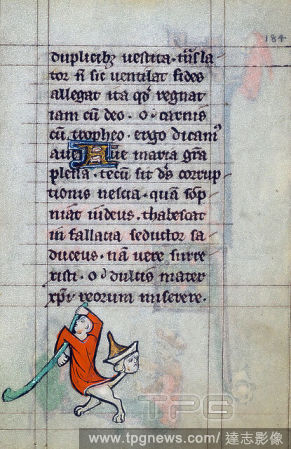 184
duplicibꝫ vestita · trāsla
tor ñ sic ventilat fides
allegat ita qđ regnat
iam cū deo · o · carnis
cū tropheo · ergo dicam⁹
Aue maria gr̄a
plena · tecū sit dñs corrup
tionis nescia · quā
iudeus · thabescat
in fallacia seductor sa
duceus · nā vere surre
xisti · o dulcis mater
xp̄i reorum miserere ·
TPG
www.tpgnews.com/ 達志影像